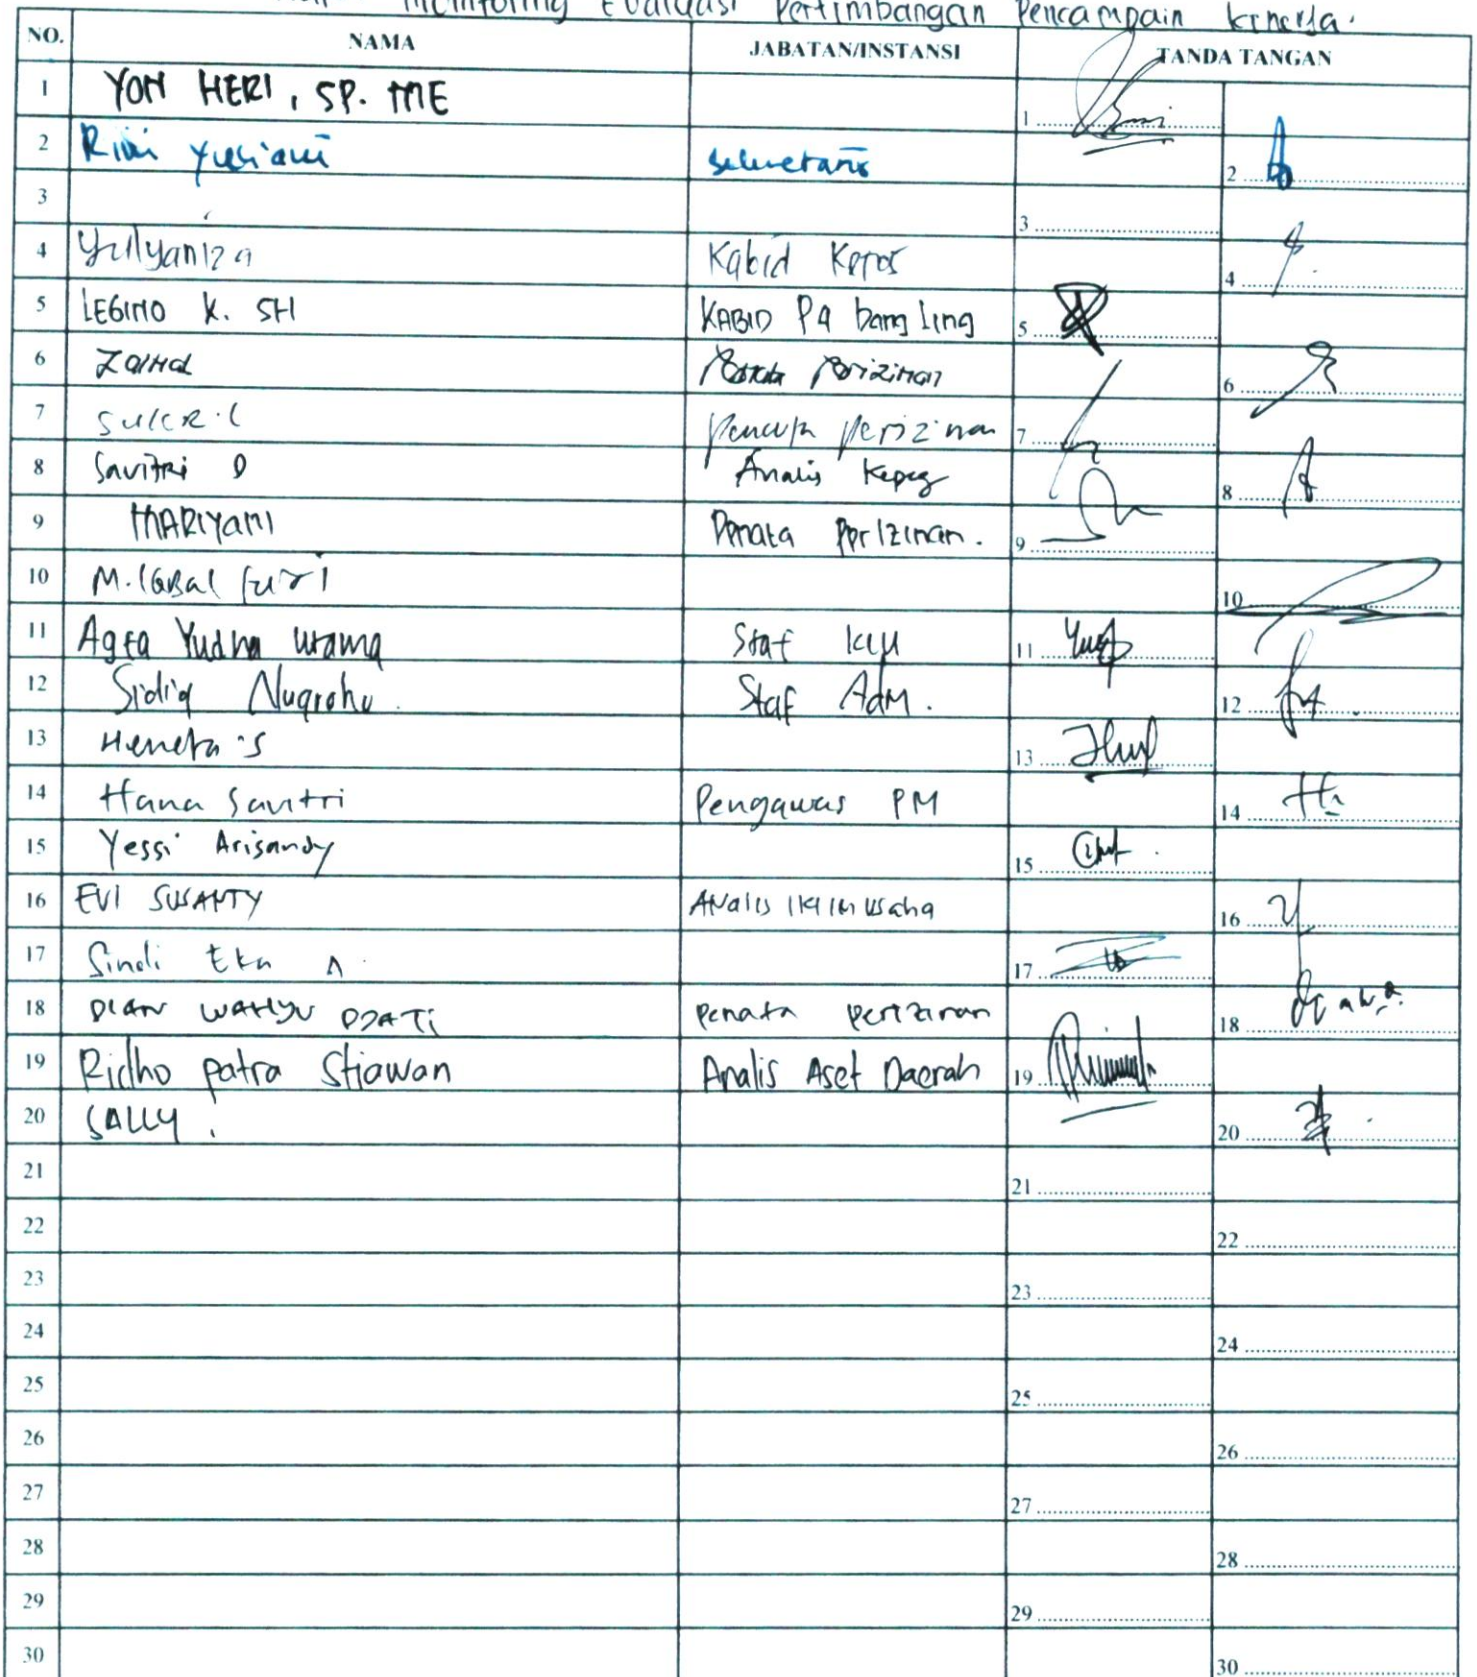 monitoring Evaluasi Pertimbangan Pencampain kinerja.
NO. NAMA JABATAN/INSTANSI TANDA TANGAN
1 YON HERI, SP. ME 1
2 Rini Yusiani sekretaris 2
3 3
4 Yulyaniza Kabid 4
5 LEGINO K. SH KABID Pa bang ling 5
6 Perizinan 6
7 SUKRI perizinan 7
8 Savitri D Analis Kepeg 8
9 MARIYAMI Penata Perizinan. 9
10 M. IQBAL 10
11 Agta Yudha utama Staf 11
12 Sidiq Nugroho Staf Adm. 12
13 13
14 Hana Savitri Pengawas PM 14
15 Yessi Arisandy 15
16 EVI SUSANTY Analis Iklim usaha 16
17 Sindi Eka A. 17
18 DIAN WAHYU penata perizinan 18
19 Ridho patra Stiawan Analis Aset Daerah 19
20 SALLY. 20
21 21
22 22
23 23
24 24
25 25
26 26
27 27
28 28
29 29
30 30